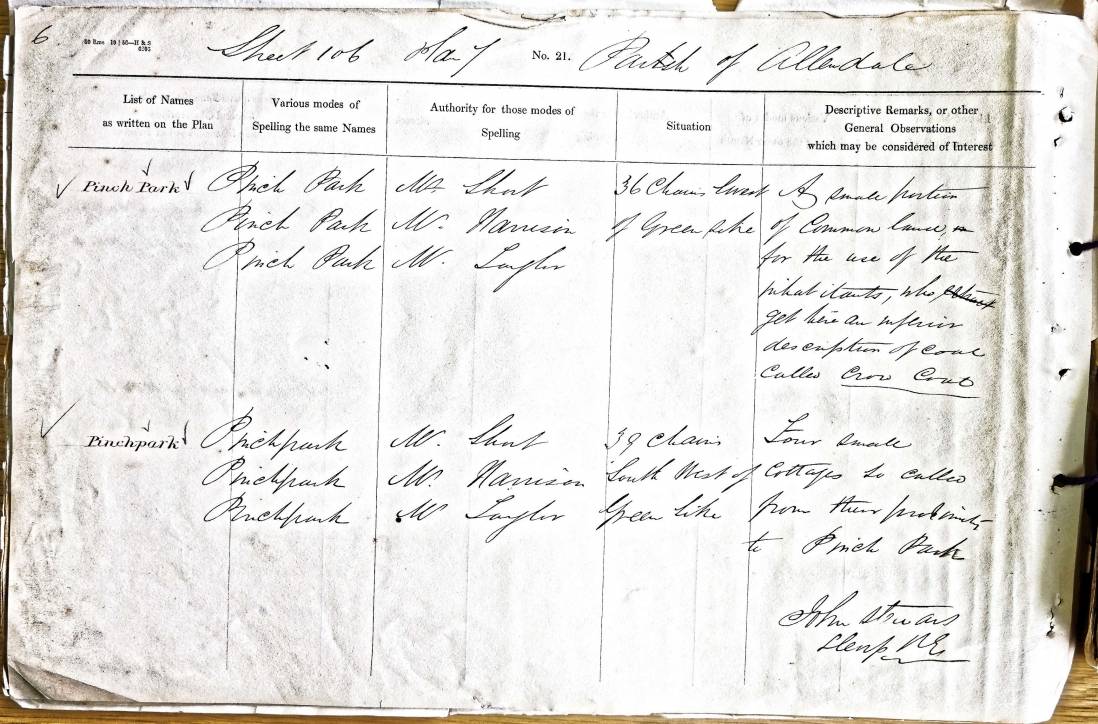 6
Sheet 106 Plan 7 No. 21. Parish of Allendale
List of Names as written on the Plan
Various modes of Spelling the same Names
Authority for those modes of Spelling
Situation
Descriptive Remarks, or other General Observations which may be considered of Interest
Pinch Park
Pinch Park
Pinch Park
Pinch Park
Mr. Short
Mr. Harrison
Mr. Taylor
36 Chains West
of Green Sike
A small portion
of Common land,
for the use of the
inhabitants, who
get here an inferior
description of coal
called Crow Coal
Pinchpark
Pinchpark
Pinchpark
Pinchpark
Mr. Short
Mr. Harrison
Mr. Taylor
39 chains
South West of
Green Sike
Four small
Cottages so called
from their proximity
to Pinch Park
John
R.E.